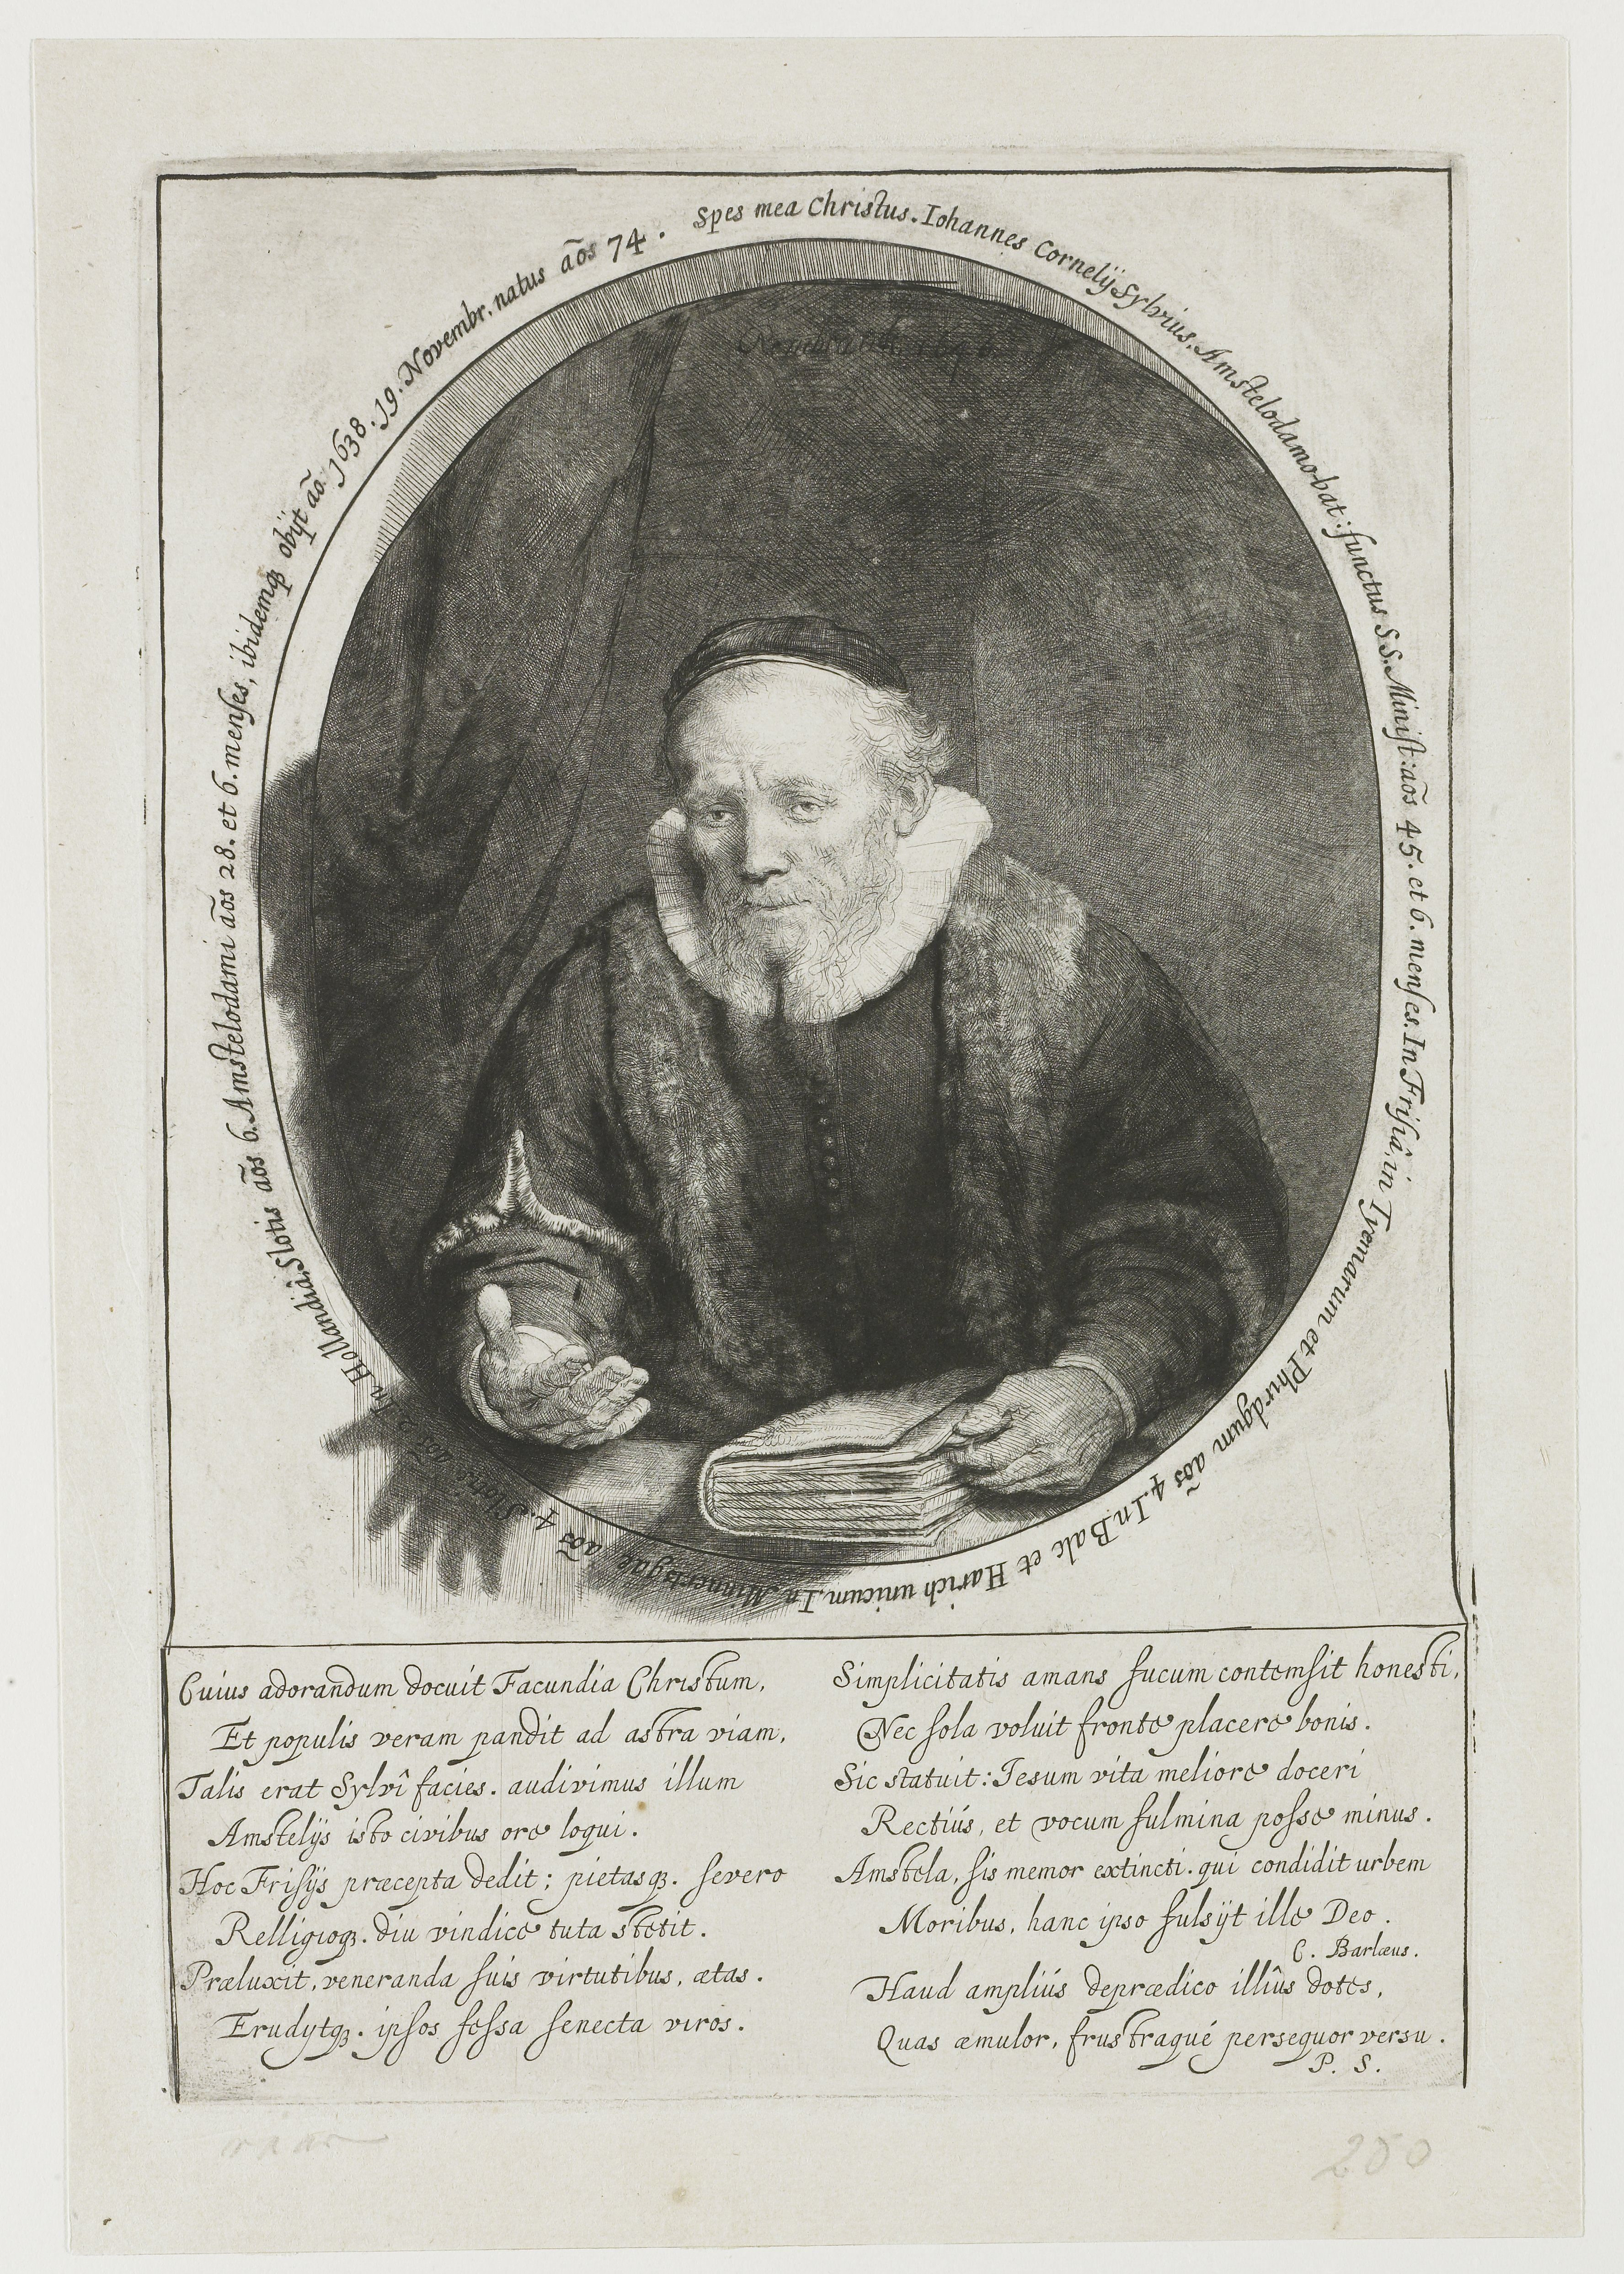 Spes mea Christus. Iohannes Cornelij Sylvius, Amstelodamo-bat: functus S S. Minist: aõs 45. et 6. menses. In Frisiâ, in Tyemarum et Phirdgum aõs 4. In Balc et Harich unicum. In Minnertsgae aõs 4. Slotis aõs 2. In Hollandiâ, Slotis aõs 6. Amstelodami aõs 28. et 6. menses, ibidemq3 obijt aõ. 1638. 19. Novembr. natus aõs 74.
Rembrandt 1646
Cuius adorandum docuit Facundia Christum,
Et populis veram pandit ad astra viam,
Talis erat Sylvî facies. audivimus illum
Amstelijs isto civibus ore loqui.
Hoc Frisijs præcepta dedit; pietasq3. severo
Relligioq3. diu vindice tuta stetit.
Præluxit, veneranda suis virtutibus, ætas.
Erudytq3. ipsos fessa senecta viros.
Simplicitatis amans fucum contemsit honesti,
Nec sola voluit fronte placere bonis.
Sic statuit: Iesum vita meliore doceri
Rectiús, et vocum fulmina posse minus.
Amstela, sis memor extincti. qui condidit urbem
Moribus, hanc ipso fulsijt ille Deo.
C. Barlæus.
Haud ampliús deprædico illîus dotes,
Quas æmulor, frustraqué persequor versu.
P. S.
250